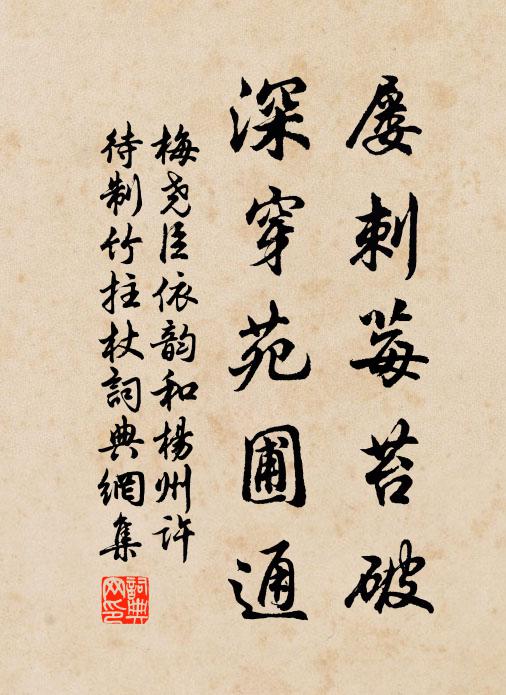 屡刺莓苔破
深穿苑圃通
梅尧臣依韵和楊州許
待制竹拄杖詞典網集
詞典
网印